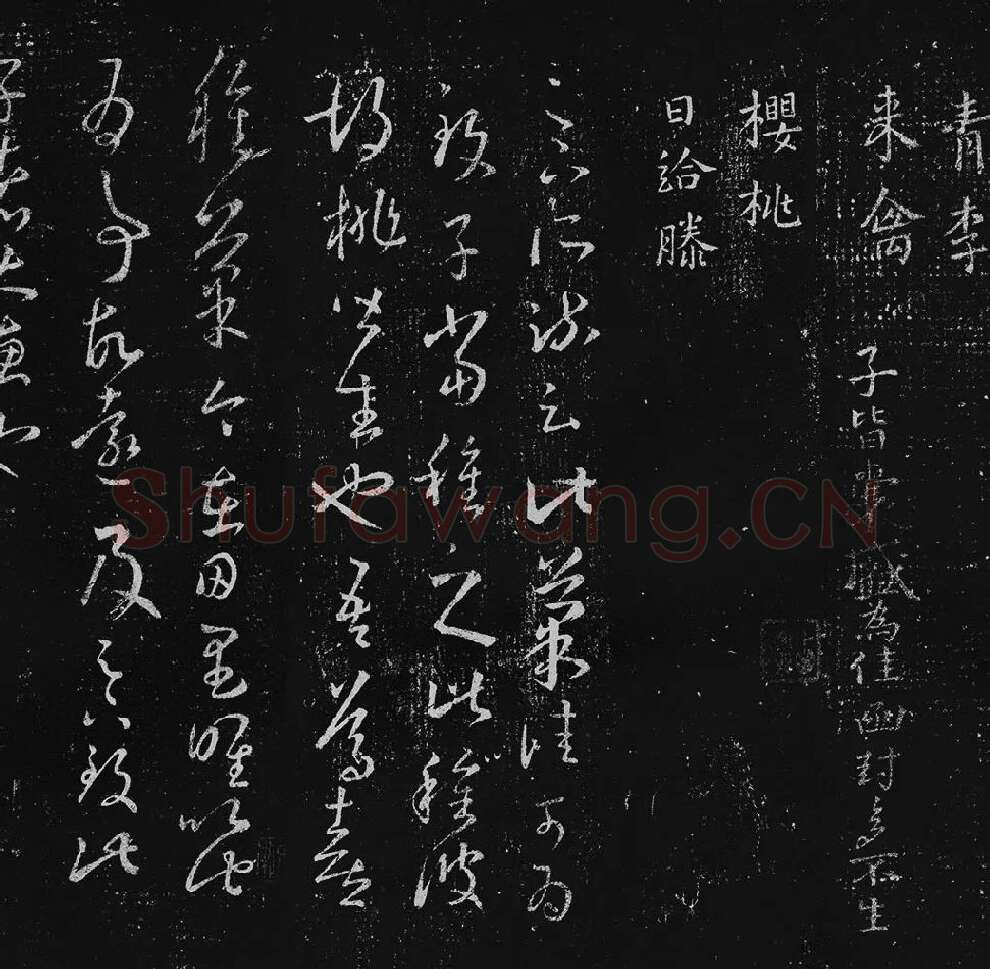 青李
来禽 子皆囊盛為佳函封多不生
櫻桃
日給滕
足下所疏云此菓佳可為
致子當種之此種彼
胡桃皆生也吾篤喜
種菓今在田里唯以此
為事故遠及足下致此
子者大惠也
Shufawang.CN